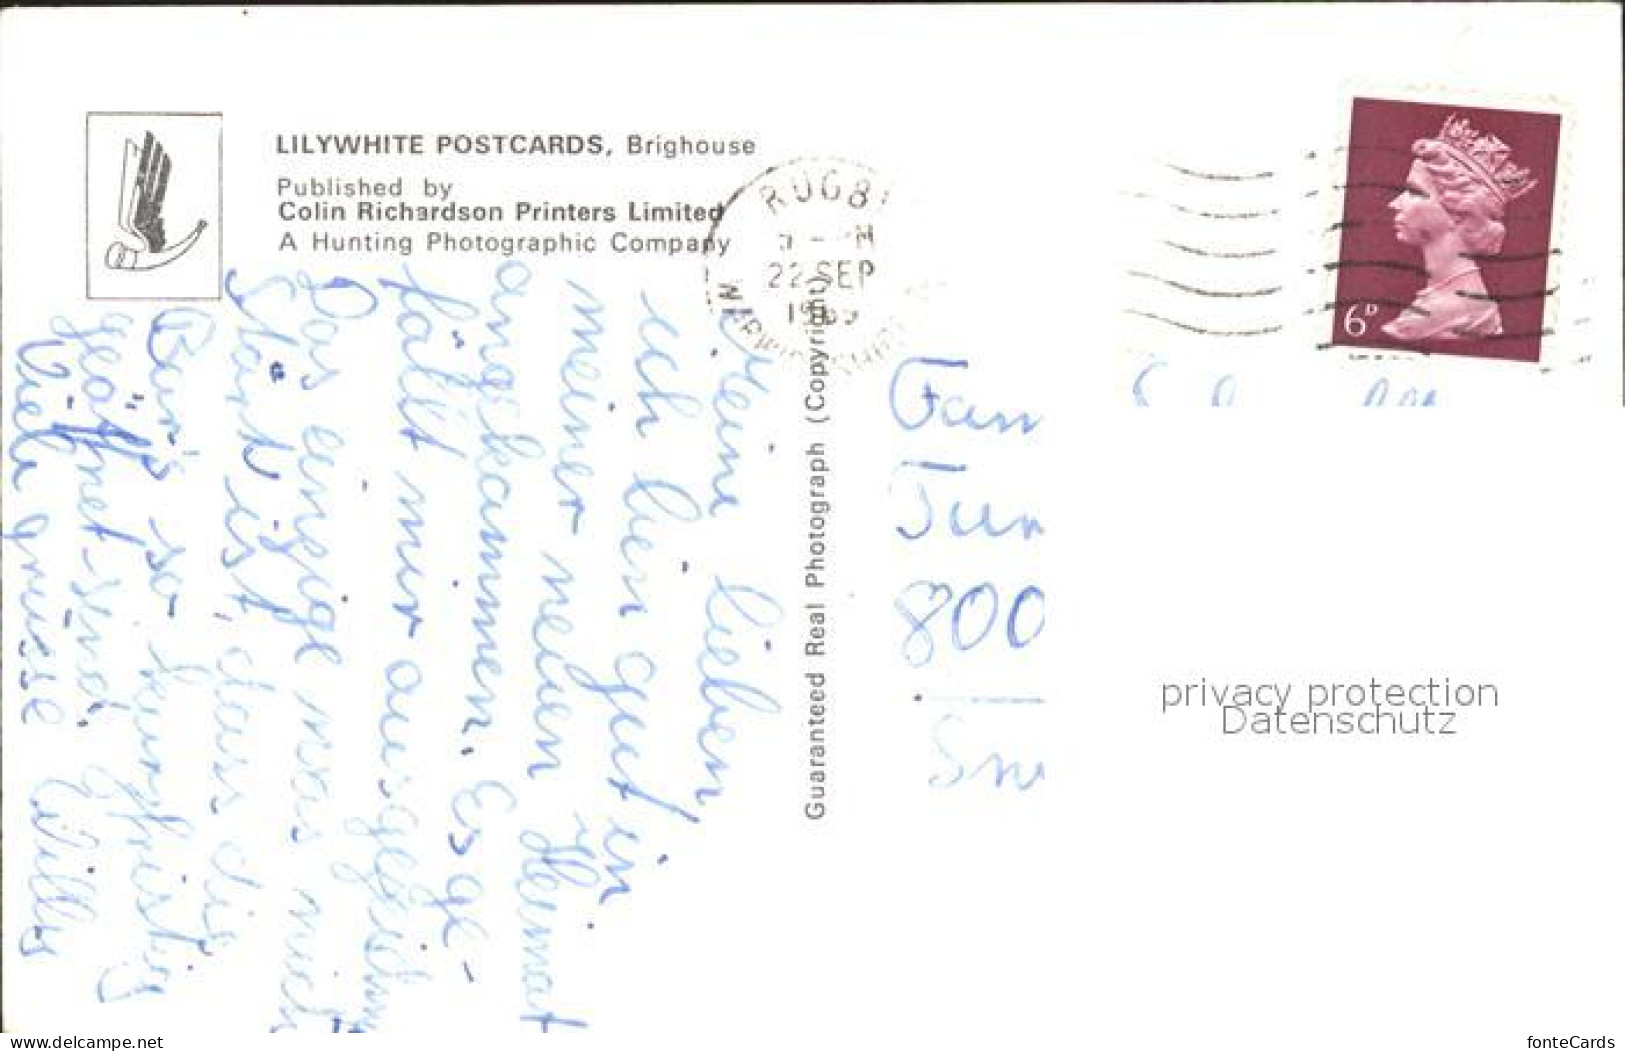 LILYWHITE POSTCARDS, Brighouse
Published by
Colin Richardson Printers Limited
A Hunting Photographic Company
RUGBY
22 SEP
WARWICKSHIRE
6P
Guaranteed Real Photograph (Copyright)
Meine lieben,
ich bin gut in
meiner neuen Heimat
angekommen. Es ge-
fällt mir ausgezeichn
Das einzige was mich
Stört ist, dass die
Bar's so kurzfristig
geöffnet sind.
Viele grüsse Willy
Fam
Tur
800
privacy protection
Datenschutz
www.delcampe.net
fonteCards